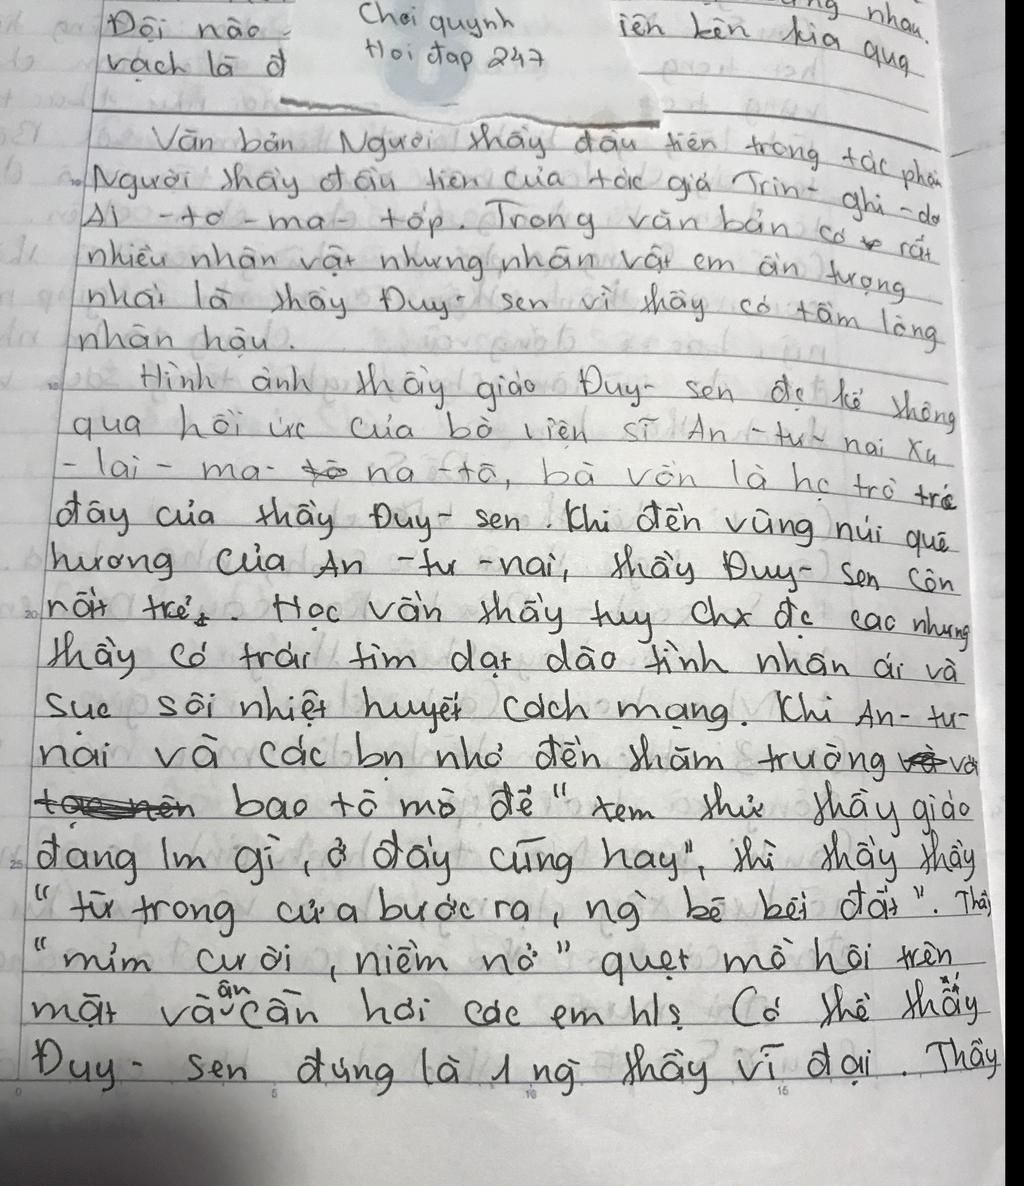 ng nhau.
Đội nào
Chơi quynh
iên bên kia qua
vạch là đ
Hoi đap 247
Văn bản Người thầy đầu tiên trong tác phẩm
Người thầy đầu tiên của tác giả Trin-ghi-dơ
Ai-tơ-ma-tốp. Trong văn bản có rất
nhiều nhân vật nhưng nhân vật em ấn tượng
nhất là thầy Đuy-sen vì thầy có tấm lòng
nhân hậu.
Hình ảnh thầy giáo Đuy-sen đc kể thông
qua hồi ức của bà viện sĩ An-tư-nai Xu
-lai-ma-na-tô, bà vốn là hc trò trc
đây của thầy Đuy-sen. Khi đến vùng núi quê
hương của An-tư-nai, thầy Đuy-sen còn
rất trẻ. Học vấn thầy tuy chx đc cao nhưng
thầy có trái tim dạt dào tình nhân ái và
sục sôi nhiệt huyết cách mạng. Khi An-tư-
nai và các bn nhỏ đến thăm trường với
bao tò mò để "xem thử thầy giáo
đang lm gì, ở đấy cũng hay", thì thấy thầy
"từ trong cửa bước ra, ng` bê bết đất". Thầy
"mỉm cười, niềm nở" quẹt mồ hôi trên
mặt và ân cần hỏi các em hs. Có thể thấy
Đuy-sen đúng là 1 ng` thầy vĩ đại. Thầy